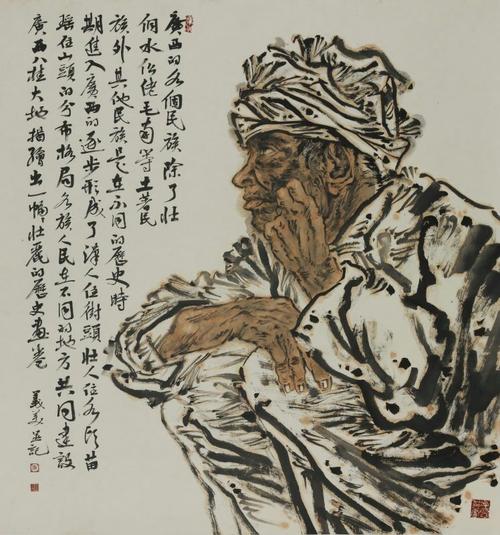 廣西的各個民族除了壯
侗水仫佬毛南等土著民
族外其他民族是在不同的歷史時
期進入廣西的逐步形成了漢人住街頭壯人住水头苗
瑤住山頭的分布格局各族人民在不同的地方共同建設
廣西八桂大地描繪出一幅幅壯麗的歷史畫卷